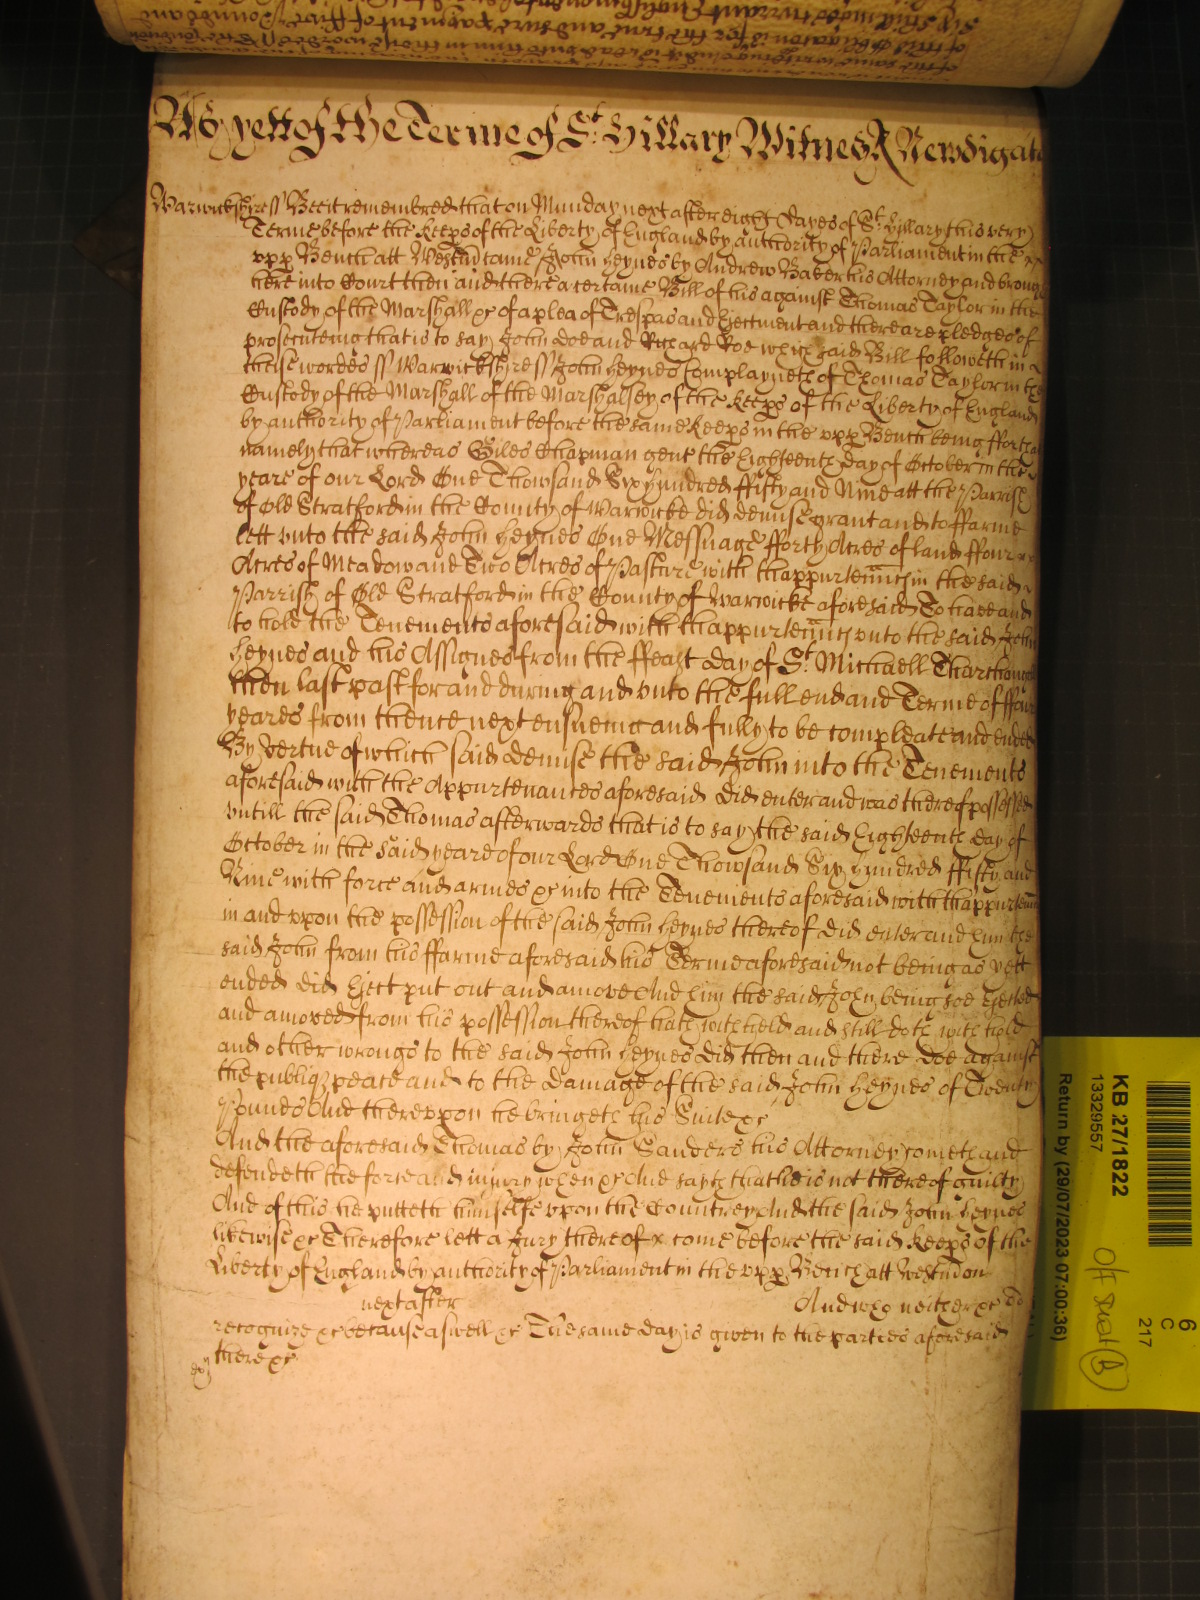 As yett of the Terme of St. Hillary Witnes R Newdigate
Warwickshyre ss Bee it remembred that on Munday next after eight dayes of St. Hillary this very
Terme before the Keeps of the Liberty of England by authority of Parliament in the
upp Bench att Westm came John Heynes by Andrew Baker his Attorney and brought
here into Court then and there a certaine Bill of his against Thomas Taylor in the
Custody of the Marshall &c of a plea of Trespas and Ejectment and there are pledges of
prosecuteing that is to say John Doe and Richard Roe which said Bill followeth in
theise wordes ss Warwickshyre ss John Heynes complayneth of Thomas Taylor in the
Custody of the Marshall of the Marshalsey of the Keeps of the Liberty of England
by authority of Parliament before the same Keeps in the upp Bench being
namely that whereas Giles Chapman gent the Eighteenth day of October in the
yeare of our Lord One Thowsand Six hundred ffifty and Nine att the Parrish
of Old Stratford in the County of Warwicke did demise grant and to ffarme
lett unto the said John Heynes One Messuage fforty Acres of land ffour
Acres of Meadow and Two Acres of Pasture with thappurtenncs in the said
Parrish of Old Stratford in the County of Warwicke aforesaid To have and
to hold the Tenements aforesaid with thappurtenncs unto the said John
Heynes and his Assignes from the ffeast day of St. Michaell Tharchangell
then last past for and during and unto the full end and Terme of
yeares from thence next ensueing and fully to be compleate and ended
By vertue of which said demise the said John into the Tenements
aforesaid with the Appurtenances aforesaid did enter and was thereof possessed
untill the said Thomas afterwards that is to say the said Eighteenth day of
October in the said yeare of our Lord One Thowsand Six hundred ffifty and
Nine with force and armes &c into the Tenements aforesaid with thappurtennc
in and uppon the possession of the said John Heynes thereof did enter and him the
said John from his ffarme aforesaid his Terme aforesaid not being as yett
ended did Eject put out and amove And him the said John being soe Ejected
and amoved from his possession thereof hath withheld and still doth withhold
and other wrongs to the said John Heynes did then and there doe against
the publiq peace and to the damage of the said John Heynes of Twenty
Pounds And thereuppon he bringeth his Suite &c
And the aforesaid Thomas by John Sanders his Attorney cometh and
defendeth the force and injury when &c And sayth that he is not thereof guilty
And of this he putteth himselfe uppon the Countrey And the said John Heynes
likewise &c Therefore lett a Jury thereof come before the said Keeps of the
Liberty of England by authority of Parliament in the upp Bench att Westm on
next after And who neither &c to
recognize &c because aswell &c The same day is given to the parties aforesaid
there &c
KB 27/1822
13329557
Return by (29/07/2023 07:00:36)
6
C
217
B